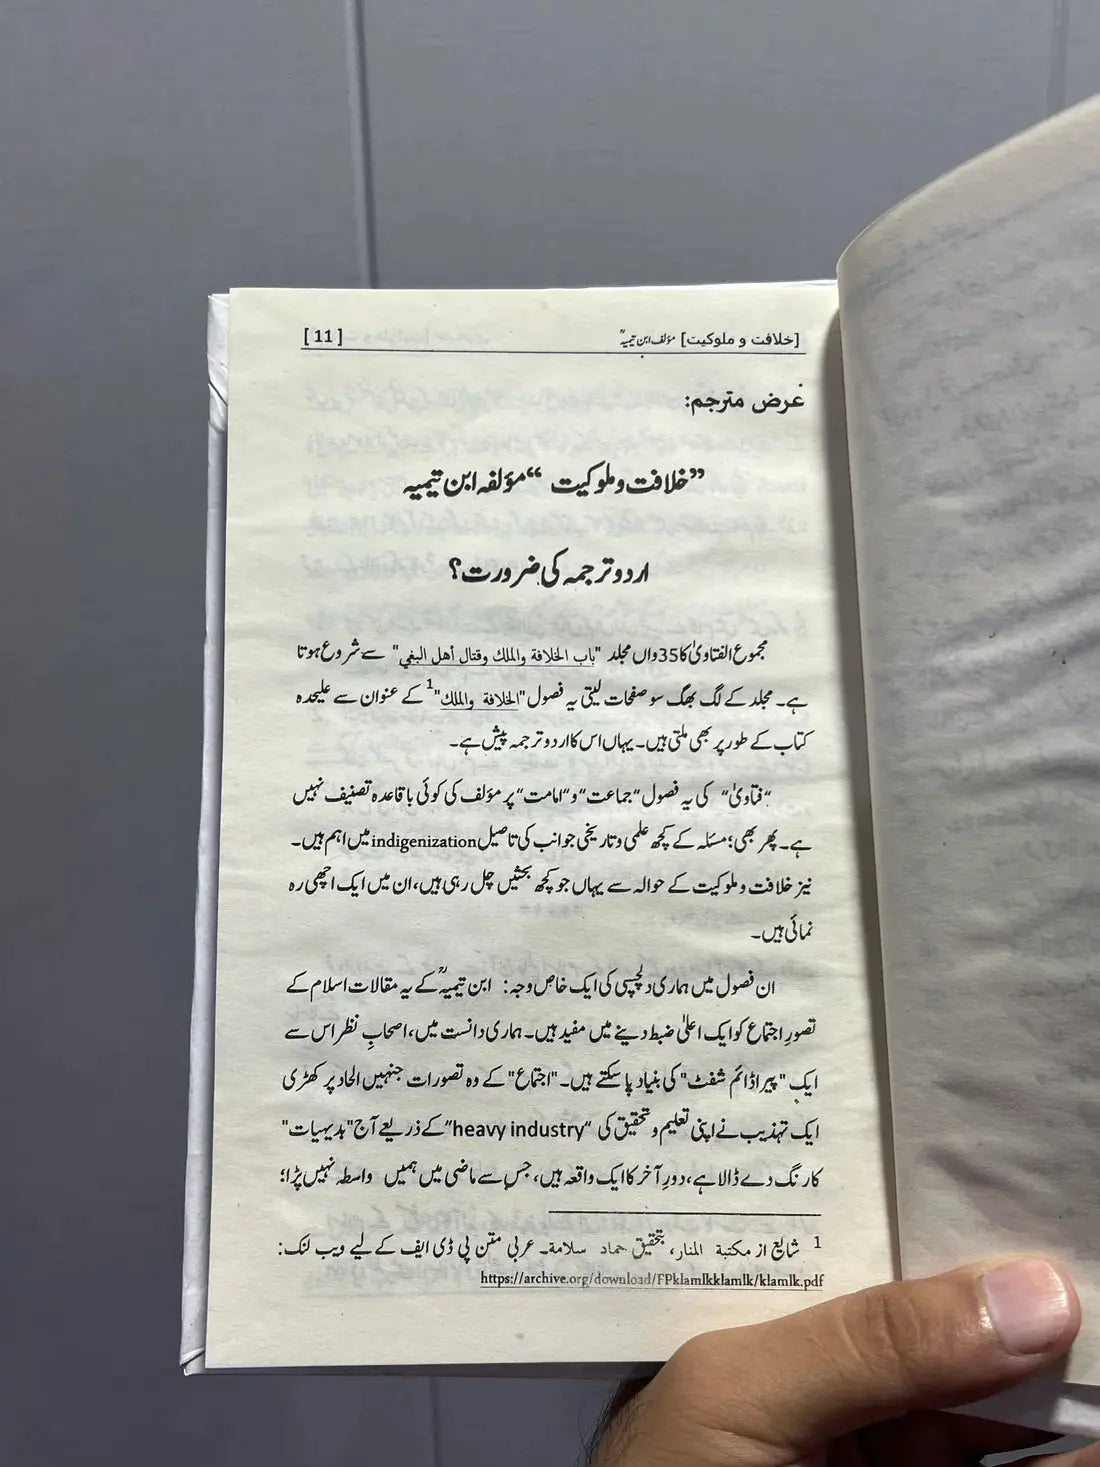 [خلافت و ملوکیت] مؤلف ابن تیمیہؒ [ 11 ]
غرض مترجم:
”خلافت و ملوکیت “مؤلفہ ابن تیمیہ
اردو ترجمہ کی ضرورت؟
مجموع الفتاویٰ کا 35 واں مجلد "باب الخلافة والملك وقتال أهل البغي" سے شروع ہوتا
ہے۔ مجلد کے لگ بھگ سو صفحات لیتی یہ فصول "الخلافة والملك"1 کے عنوان سے علیحدہ
کتاب کے طور پر بھی ملتی ہیں۔ یہاں اس کا اردو ترجمہ پیش ہے۔
”فتاویٰ“ کی یہ فصول ”جماعت“ و ”امامت“ پر مؤلف کی کوئی باقاعدہ تصنیف نہیں
ہے۔ پھر بھی؛ مسئلہ کے کچھ علمی و تاریخی جوانب کی تاصیل indigenization میں اہم ہیں۔
نیز خلافت و ملوکیت کے حوالہ سے یہاں جو کچھ بحثیں چل رہی ہیں، ان میں ایک اچھی رہ
نمائی ہیں۔
ان فصول میں ہماری دلچسپی کی ایک خاص وجہ: ابن تیمیہؒ کے یہ مقالات اسلام کے
تصورِ اجتماع کو ایک اعلیٰ ضبط دینے میں مفید ہیں۔ ہماری دانست میں، اصحابِ نظر اس سے
ایک "پیراڈائم شفٹ" کی بنیاد پا سکتے ہیں۔ "اجتماع" کے وہ تصورات جنہیں الحاد پر کھڑی
ایک تہذیب نے اپنی تعلیم و تحقیق کی “heavy industry” کے ذریعے آج "بدیہیات"
کا رنگ دے ڈالا ہے، دورِ آخر کا ایک واقعہ ہیں، جس سے ماضی میں ہمیں واسطہ نہیں پڑا؛
1 شایع از مکتبة المنار، بتحقيق حماد سلامة۔ عربی متن پی ڈی ایف کے لیے ویب لنک:
https://archive.org/download/FPklamlkklamlk/klamlk.pdf